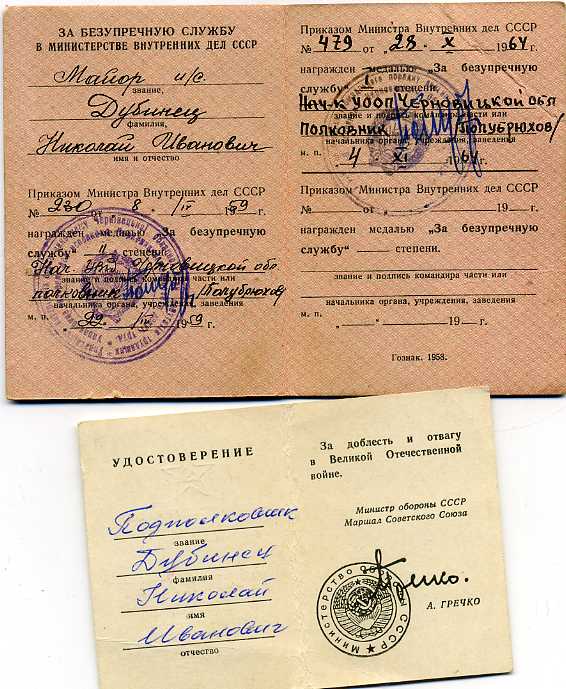 ЗА БЕЗУПРЕЧНУЮ СЛУЖБУ
В МИНИСТЕРСТВЕ ВНУТРЕННИХ ДЕЛ СССР
Майор и/с.
звание,
Дубинец
фамилия,
Николай Иванович
имя и отчество
Приказом Министра Внутренних дел СССР
№ 230 от 8. IV 1959 г.
награжден медалью „За безупречную
службу“ II степени.
Нач. Черновицкой обл
звание и подпись командира части или
полковник /Полубрюхов/
начальника органа, учреждения, заведения
м. п. 22. 1959 г.
Приказом Министра Внутренних дел СССР
№ 479 от „28. X 1964 г.
награжден медалью „За безупречную
службу“ I степени.
Нач-к УООП Черновицкой обл
звание и подпись командира части или
Полковник /Полубрюхов/
начальника органа, учреждения, заведения
м. п. 4 XI 1964 г.
Приказом Министра Внутренних дел СССР
№ от 19 г.
награжден медалью „За безупречную
службу“ степени.
звание и подпись командира части или
начальника органа, учреждения, заведения
м. п. „ “ 19 г.
Гознак. 1958.
УДОСТОВЕРЕНИЕ
Подполковник
звание
Дубинец
фамилия
Николай
имя
Иванович
отчество
За доблесть и отвагу
в Великой Отечественной
войне.
Министр обороны СССР
Маршал Советского Союза
Гречко.
А. ГРЕЧКО
МИНИСТЕРСТВО ОБОРОНЫ СССР